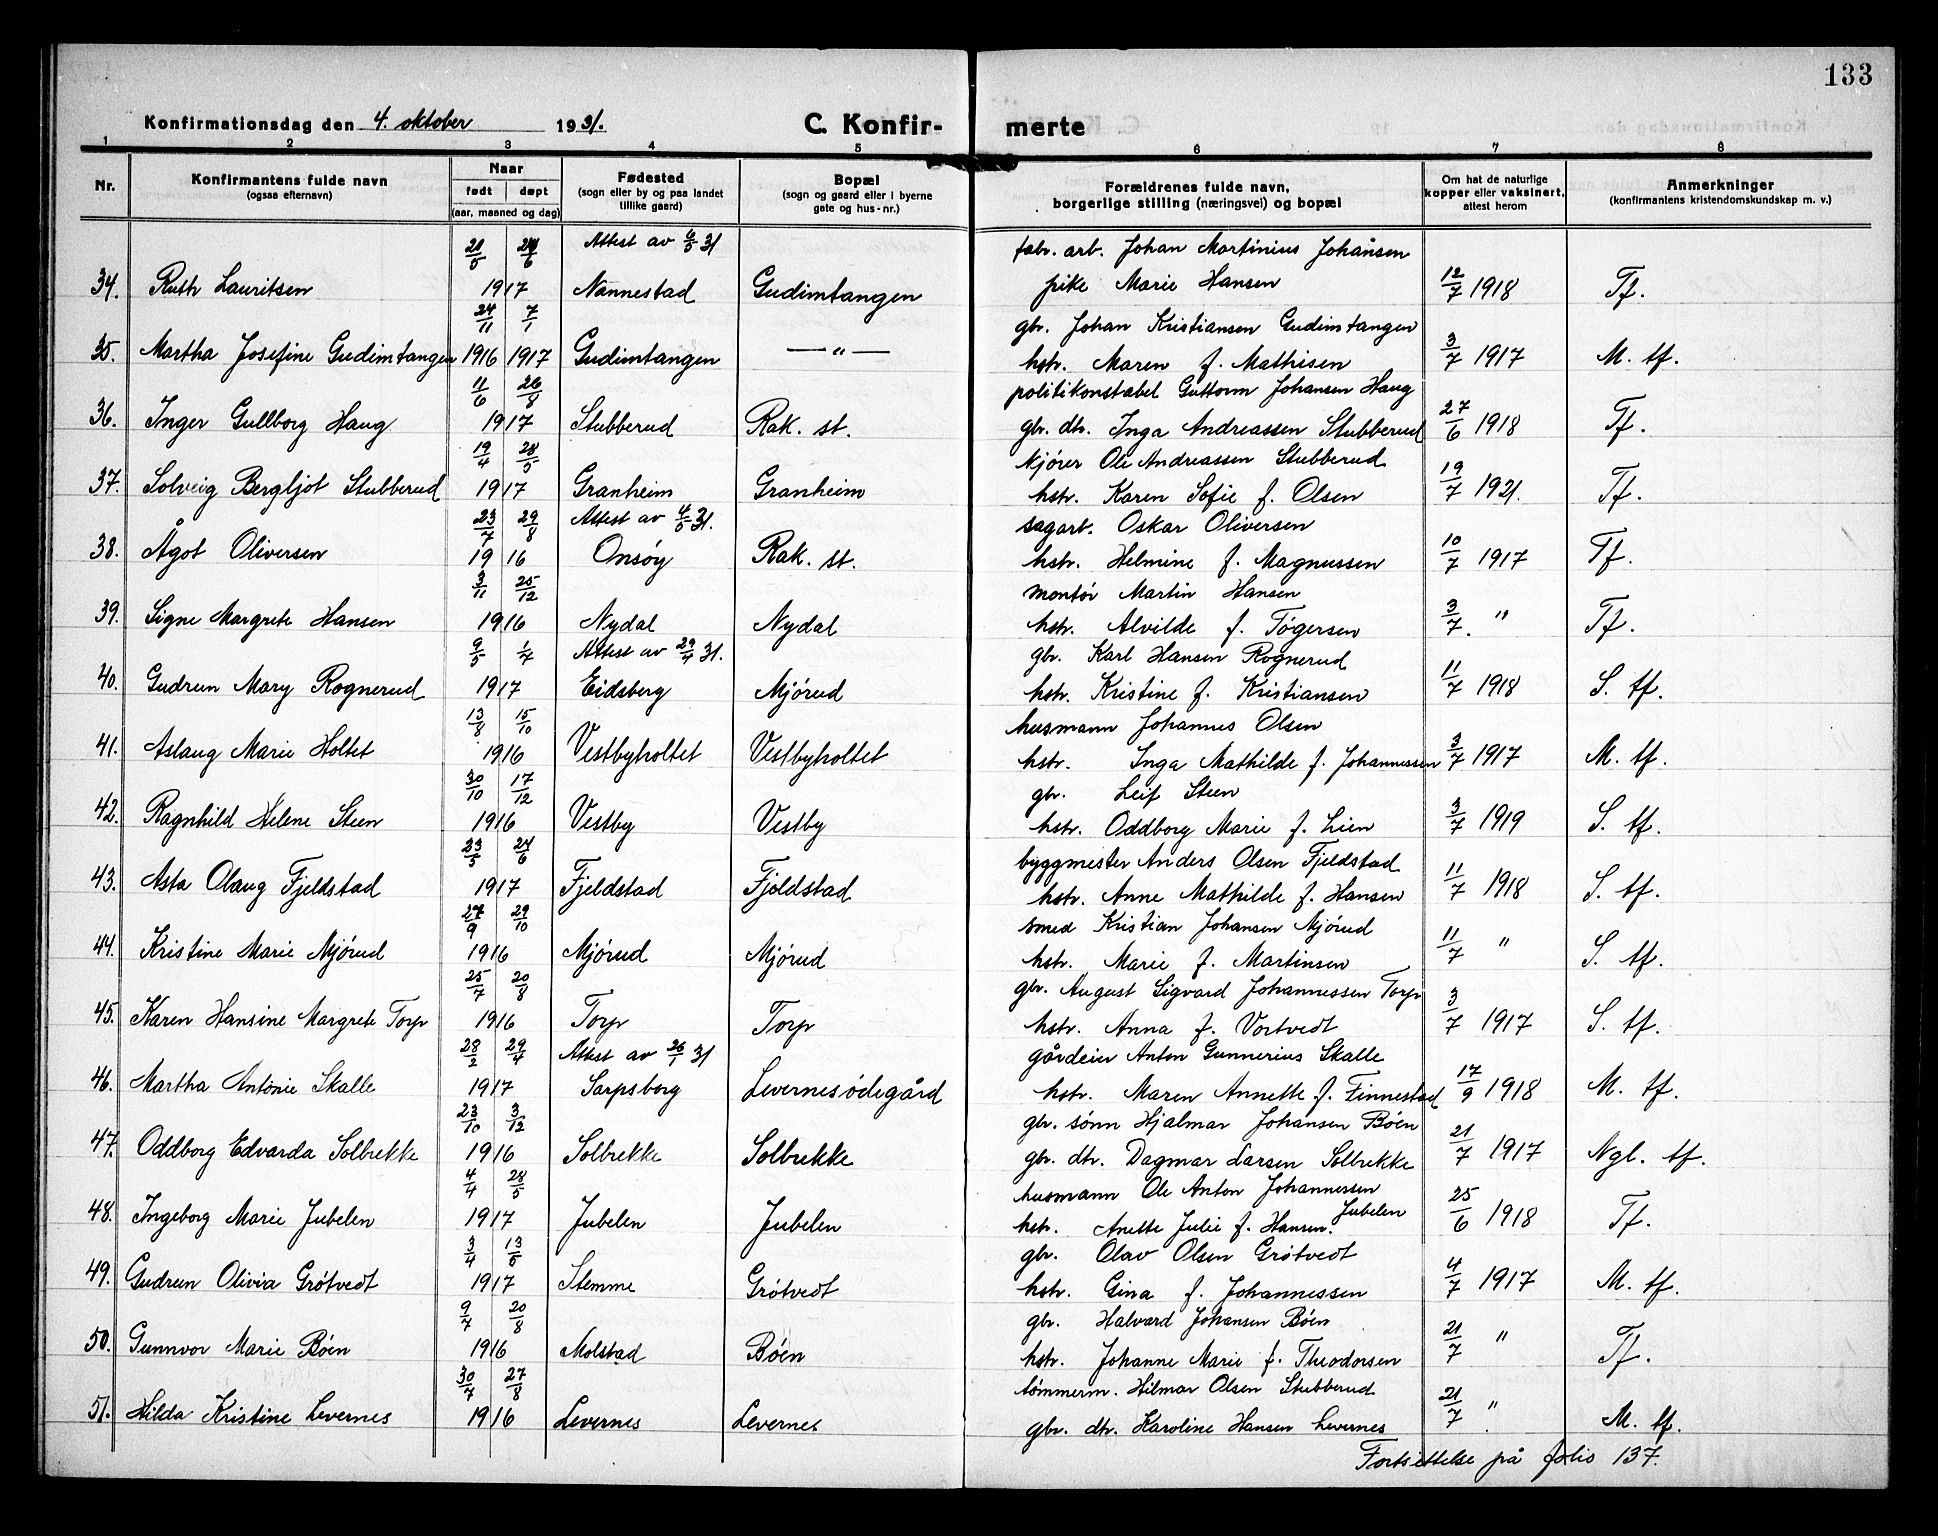 133
Konfirmationsdag den 4. oktober 1931. C. Konfir- merte
1 2 3 4 5 6 7 8
Nr. Konfirmantens fulde navn (ogsaa efternavn) Naar født døpt (aar, maaned og dag) Fødested (sogn eller by og paa landet tillike gaard) Bopæl (sogn og gaard eller i byerne gate og hus-nr.) Forældrenes fulde navn, borgerlige stilling (næringsvei) og bopæl Om hat de naturlige kopper eller vaksinert, attest herom Anmerkninger (konfirmantens kristendomskundskap m. v.)
Attest av 6/5 31 fabr. arb. Johan Martinius Johansen
34. Ruth Lauritsen 21/5 24/6 1917 Nannestad Gudimtangen pike Marie Hansen 12/7 1918 Tf.
24/11 7/1 gbr. Johan Kristiansen Gudimtangen
35. Martha Josefine Gudimtangen 1916 1917 Gudimtangen —"— hstr. Maren f. Mathisen 3/7 1917 M. tf.
11/6 26/8 politikonstabel Guttorm Johansen Haug
36. Inger Gullborg Haug 1917 Stubberud Rak. st. gbr. dtr. Inga Andreassen Stubberud 27/6 1918 Tf.
19/4 28/5 kjører Ole Andreassen Stubberud
37. Solveig Bergljot Stubberud 1917 Granheim Granheim hstr. Karen Sofie f. Olsen 19/7 1921. Tf.
23/7 29/8 Attest av 4/5 31. sagarb. Oskar Oliversen
38. Ågot Oliversen 1916 Onsøy Rak. st. hstr. Helmine f. Magnussen 10/7 1917 Tf.
3/11 25/12 montør Martin Hansen
39. Signe Margrete Hansen 1916 Nydal Nydal hstr. Alvilde f. Tøgersen 3/7. " Tf.
9/5 1/7 Attest av 29/4 31. gbr. Karl Hansen Rognerud
40. Gudrun Mary Rognerud 1917 Eidsberg Mjørud hstr. Kristine f. Kristiansen 11/7 1918 S. tf.
13/8 15/10 husmann Johannes Olsen
41. Aslaug Marie Holtet 1916 Vestbyholtet Vestbyholtet hstr. Inga Mathilde f. Johannessen 3/7 1917 M. tf.
30/10 17/12 gbr. Leif Steen
42. Ragnhild Helene Steen 1916 Vestby Vestby hstr. Oddborg Marie f. Lien 3/7 1919 S. tf.
23/5 24/6 byggmester Anders Olsen Fjeldstad
43. Asta Olaug Fjeldstad 1917 Fjeldstad Fjeldstad hstr. Anne Mathilde f. Hansen 11/7 1918 S. tf.
27/9 29/10 smed Kristian Johansen Mjørud
44. Kristine Marie Mjørud 1916 Mjørud Mjørud hstr. Marie f. Martinsen 11/7 " S. tf.
25/7 20/8 gbr. August Sigvard Johannessen Torp
45. Karen Hansine Margrete Torp 1916 Torp Torp hstr. Anna f. Vortvedt 3/7 1917 S. tf.
28/2 29/4 Attest av 26/1 31 gårdeier Anton Gunnerius Skalle
46. Martha Antonie Skalle 1917 Sarpsborg Levernesødegård hstr. Maren Annette f. Finnestad 17/9 1918 M. tf.
23/10 3/12 gbr. sønn Hjalmar Johansen Bøen
47. Oddborg Edvarda Solbrekke 1916 Solbrekke Solbrekke gbr. dtr. Dagmar Larsen Solbrekke 21/7 1917 Ngl. tf.
4/4 28/5 husmann Ole Anton Johannessen Jubelen
48. Ingeborg Marie Jubelen 1917 Jubelen Jubelen hstr. Anette Julie f. Hansen. 25/6 1918 Tf.
3/4 13/5 gbr. Olav Olsen Grøtvedt
49. Gudrun Olivia Grøtvedt 1917 Stemme Grøtvedt hstr. Gina f. Johannessen 4/7 1917 M. tf.
9/7 20/8 gbr. Halvard Johansen Bøen
50. Gunnvor Marie Bøen 1916 Molstad Bøen hstr. Johanne Marie f. Theodorsen 21/7 " Tf.
30/7 27/8 tømmerm. Hilmar Olsen Stubberud
51. Hilda Kristine Levernes 1916 Levernes Levernes gbr. dtr. Karoline Hansen Levernes 21/7 " M. tf.
Fortsettelse på folio 137.